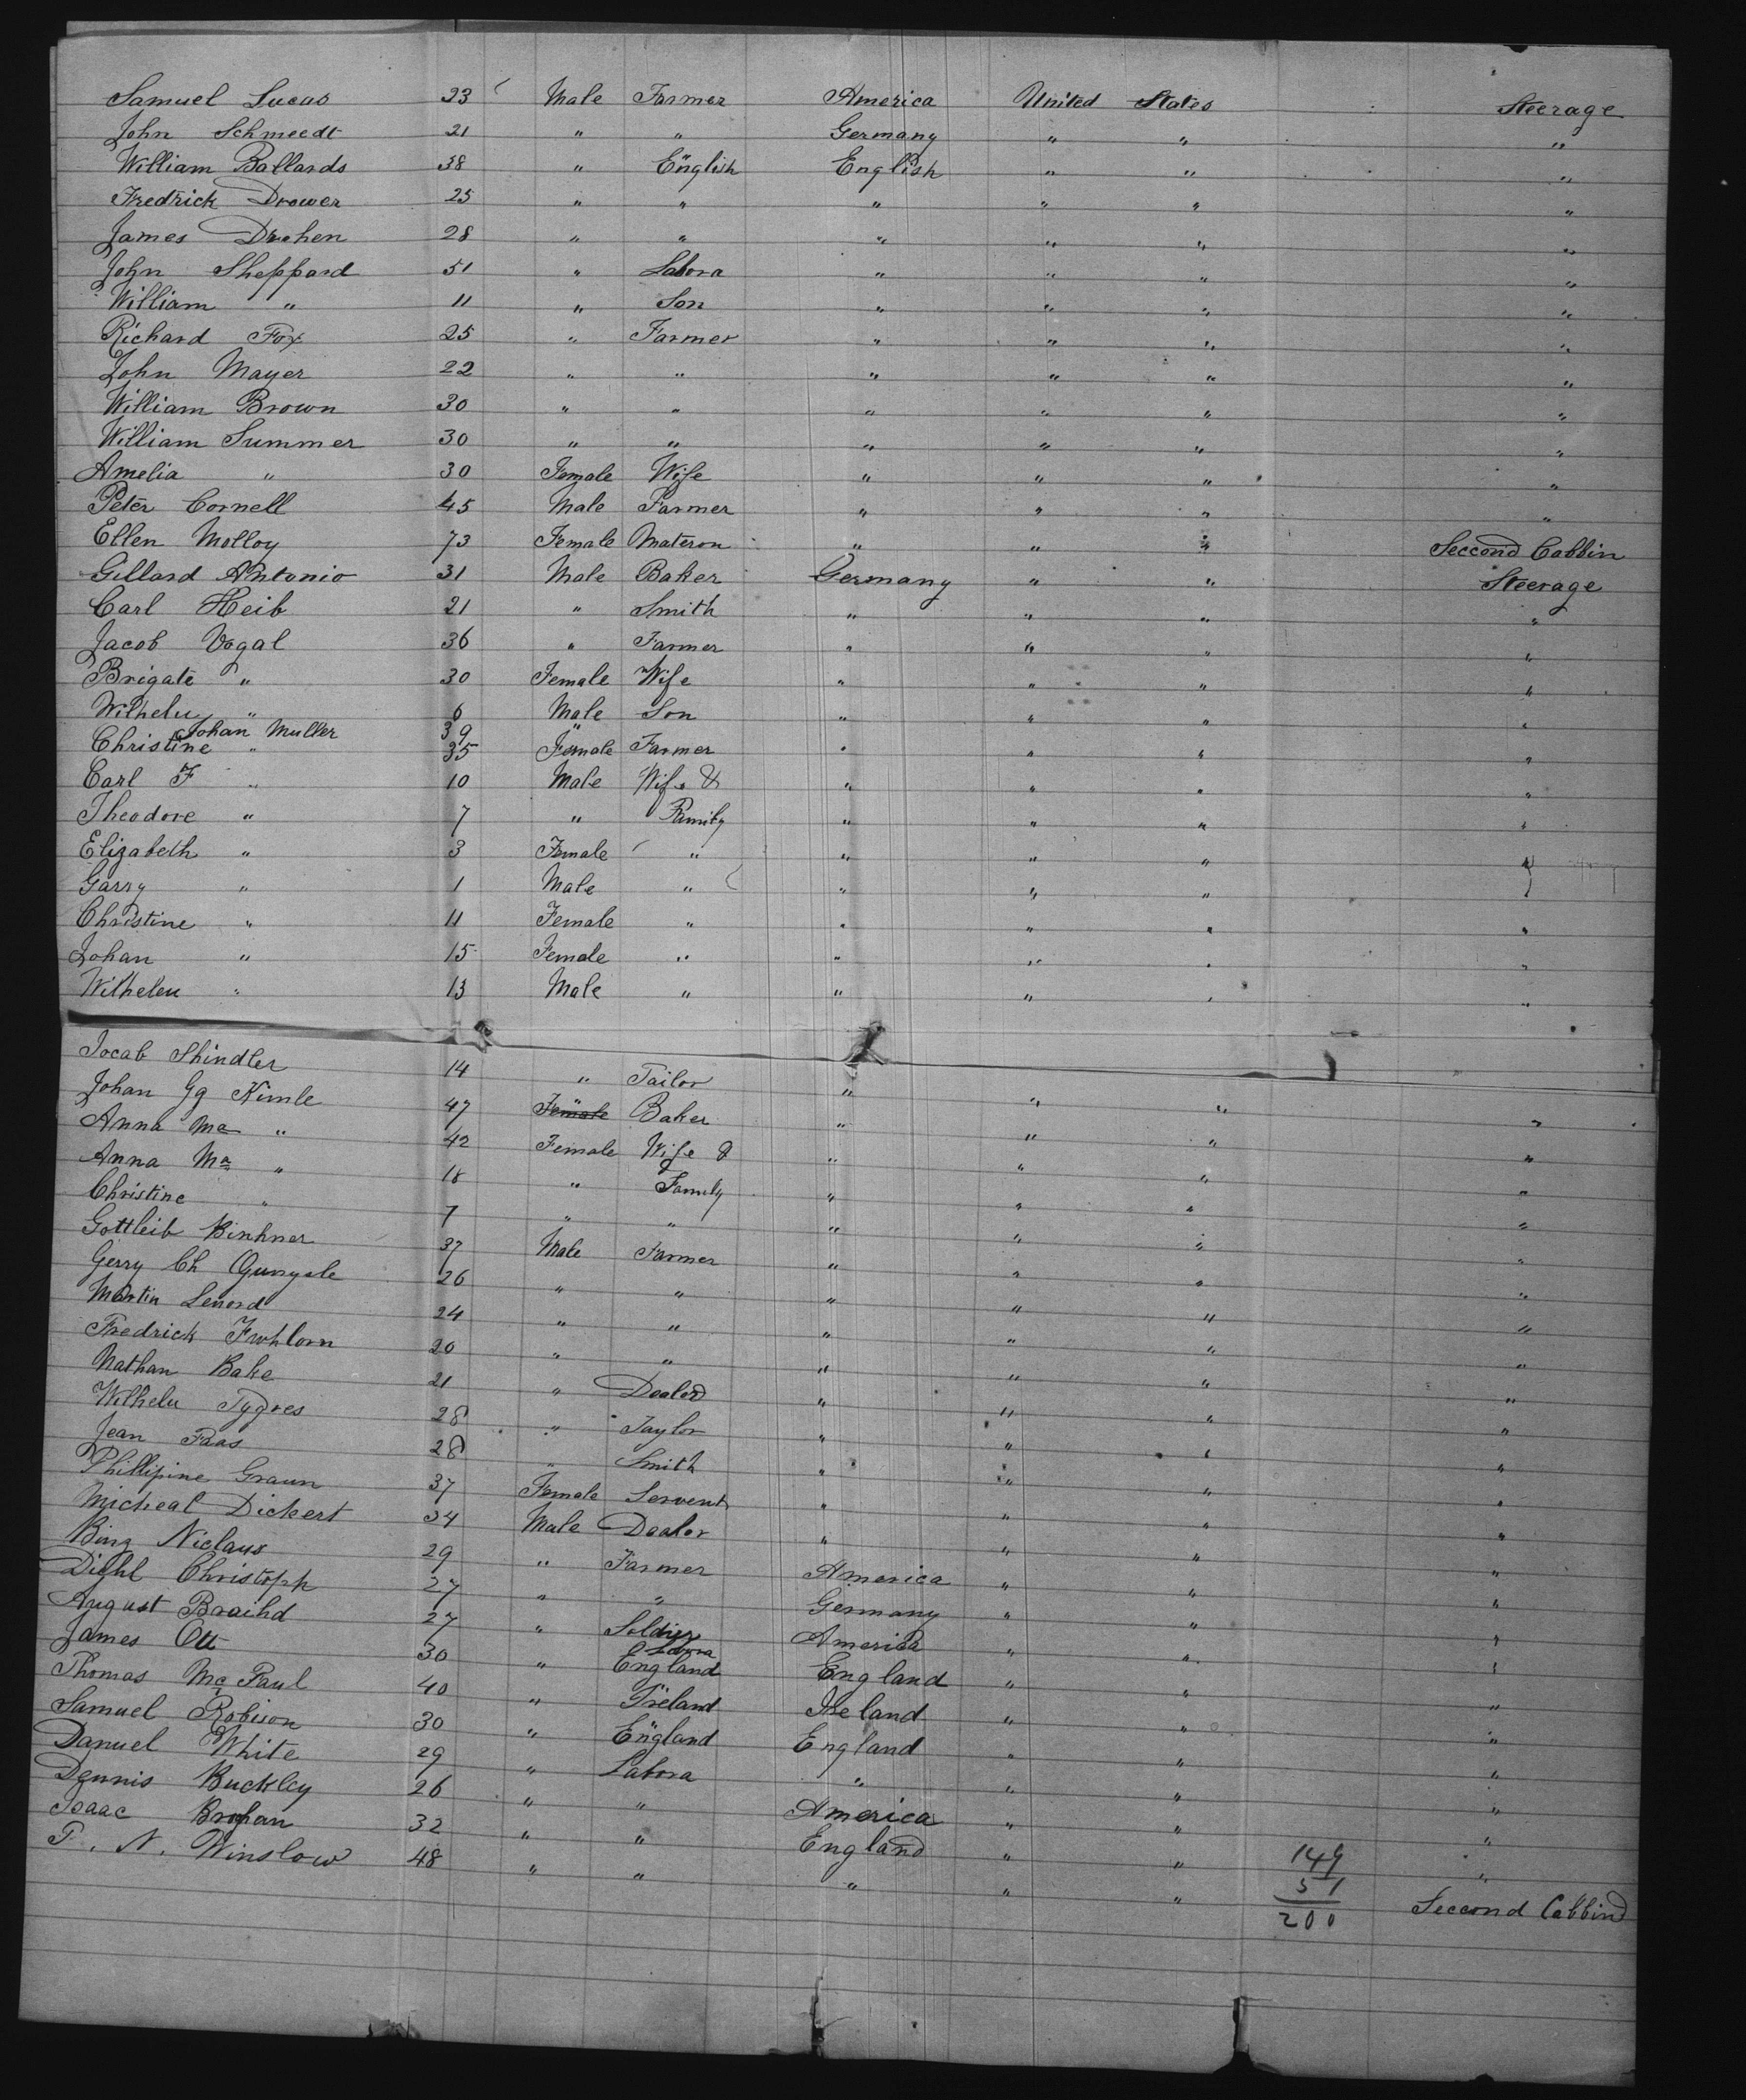 Samuel Lucas 23 Male Farmer America United States Steerage
John Schmeedt 21 " " Germany " " "
William Ballards 38 " English English " " "
Fredrick Drower 25 " " " " " "
James Drohen 28 " " " " " "
John Sheppard 51 " Labora " " " "
William " 11 " Son " " " "
Richard Fox 25 " Farmer " " " "
John Mayer 22 " " " " " "
William Brown 30 " " " " " "
William Summer 30 " " " " " "
Amelia " 30 Female Wife " " " "
Peter Cornell 45 Male Farmer " " " "
Ellen Molloy 73 Female Materon " " " Seccond Cabbin
Gillard Antonio 31 Male Baker Germany " " Steerage
Carl Heib 21 " Smith " " " "
Jacob Vogal 36 " Farmer " " " "
Brigate " 30 Female Wife " " " "
Wilhelu " 6 Male Son " " " "
Johan Muller 39 "
Christine " 35 Female Farmer " " " "
Carl F " 10 Male Wife & " " " "
Theodore " 7 " Family " " " "
Elizabeth " 3 Female " " " " "
Garry " 1 Male " " " " "
Christine " 11 Female " " " " "
Johan " 15 Female " " " " "
Wilhelu " 13 Male " " " " "
Jocab Shindler 14 " Tailor " " " "
Johan Gg Kimle 47 Female Baker " " " "
Anna Ma " 42 Female Wife & " " " "
Anna Ma " 18 " Family " " " "
Christine " 7 " " " " " "
Gottleib Binhner 37 Male Farmer " " " "
Gerry Ch 26 " " " " " "
Martin Lenord 24 " " " " " "
Fredrick Frohlorn 20 " " " " " "
Nathan Bake 21 " Dealer " " " "
Wilhelu Tygres 28 " Taylor " " " "
Jean Paas 28 " Smith " " " "
Phillipine Graun 37 Female Servent " " " "
Micheal Dickert 34 Male Dealer " " " "
Bing Niclaus 29 " Farmer America " " "
Dighl Christoph 27 " " Germany " " "
August Braihd 27 " Soldier America " " "
James Ott 30 " Labora England England " " "
Thomas Mc Paul 40 " Ireland Ireland " " "
Samuel Robison 30 " England England " " "
Danuel White 29 " Labora " " " "
Dennis Buckley 26 " " America " " "
Isaac Brofan 32 " " England " " "
P. N. Winslow 48 " " " " " Seccond Cabbin
149
51
200